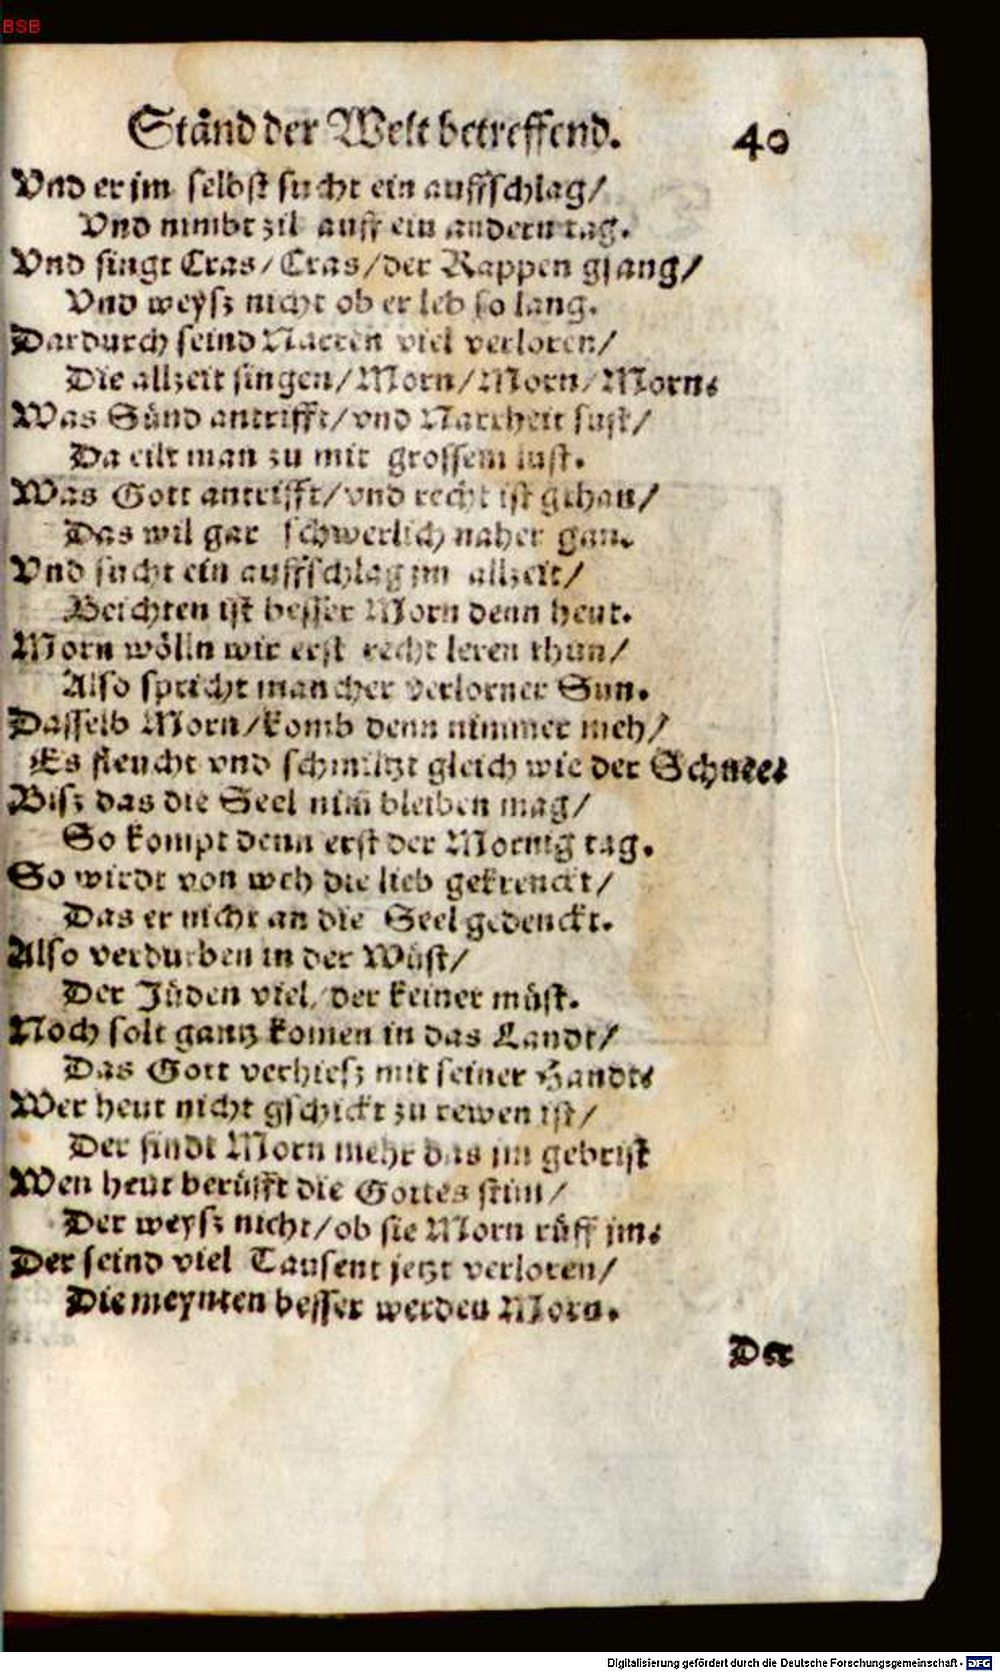 BSB
Ständ der Welt betreffend. 40
Vnd er jm selbst sucht ein auffschlag/
Vnd nimbt zil auff ein andern tag.
Vnd singt Cras/Cras/der Rappen gsang/
Vnd weysz nicht ob er leb so lang.
Dardurch seind Narren viel verloren/
Die allzeit singen/Morn/Morn/Morn.
Was Sünd antrifft/vnd Narrheit sust/
Da eilt man zu mit grossem lust.
Was Gott antrifft/vnd recht ist gthan/
Das wil gar schwerlich naher gan.
Vnd sucht ein auffschlag jm allzeit/
Beichten ist besser Morn denn heut.
Morn wölln wir erst recht leren thun/
Also spricht mancher verlorner Sun.
Dasselb Morn/komb denn nimmer meh/
Es fleucht vnd schmiltzt gleich wie der Schnee.
Bisz das die Seel nim̄ bleiben mag/
So kompt denn erst der Mornig tag.
So wirdt von weh die lieb gekrenckt/
Das er nicht an die Seel gedenckt.
Also verdurben in der Wüst/
Der Jüden viel/der keiner müst.
Noch solt gantz komen in das Landt/
Das Gott verhiesz mit seiner Handt.
Wer heut nicht gschickt zu rewen ist/
Der findt Morn mehr das jm gebrist
Wen heut berüfft die Gottes stim/
Der weysz nicht/ob sie Morn rüff jm.
Der seind viel Tausent jetzt verloren/
Die meynten besser werden Morn.
Der
Digitalisierung gefördert durch die Deutsche Forschungsgemeinschaft - DFG